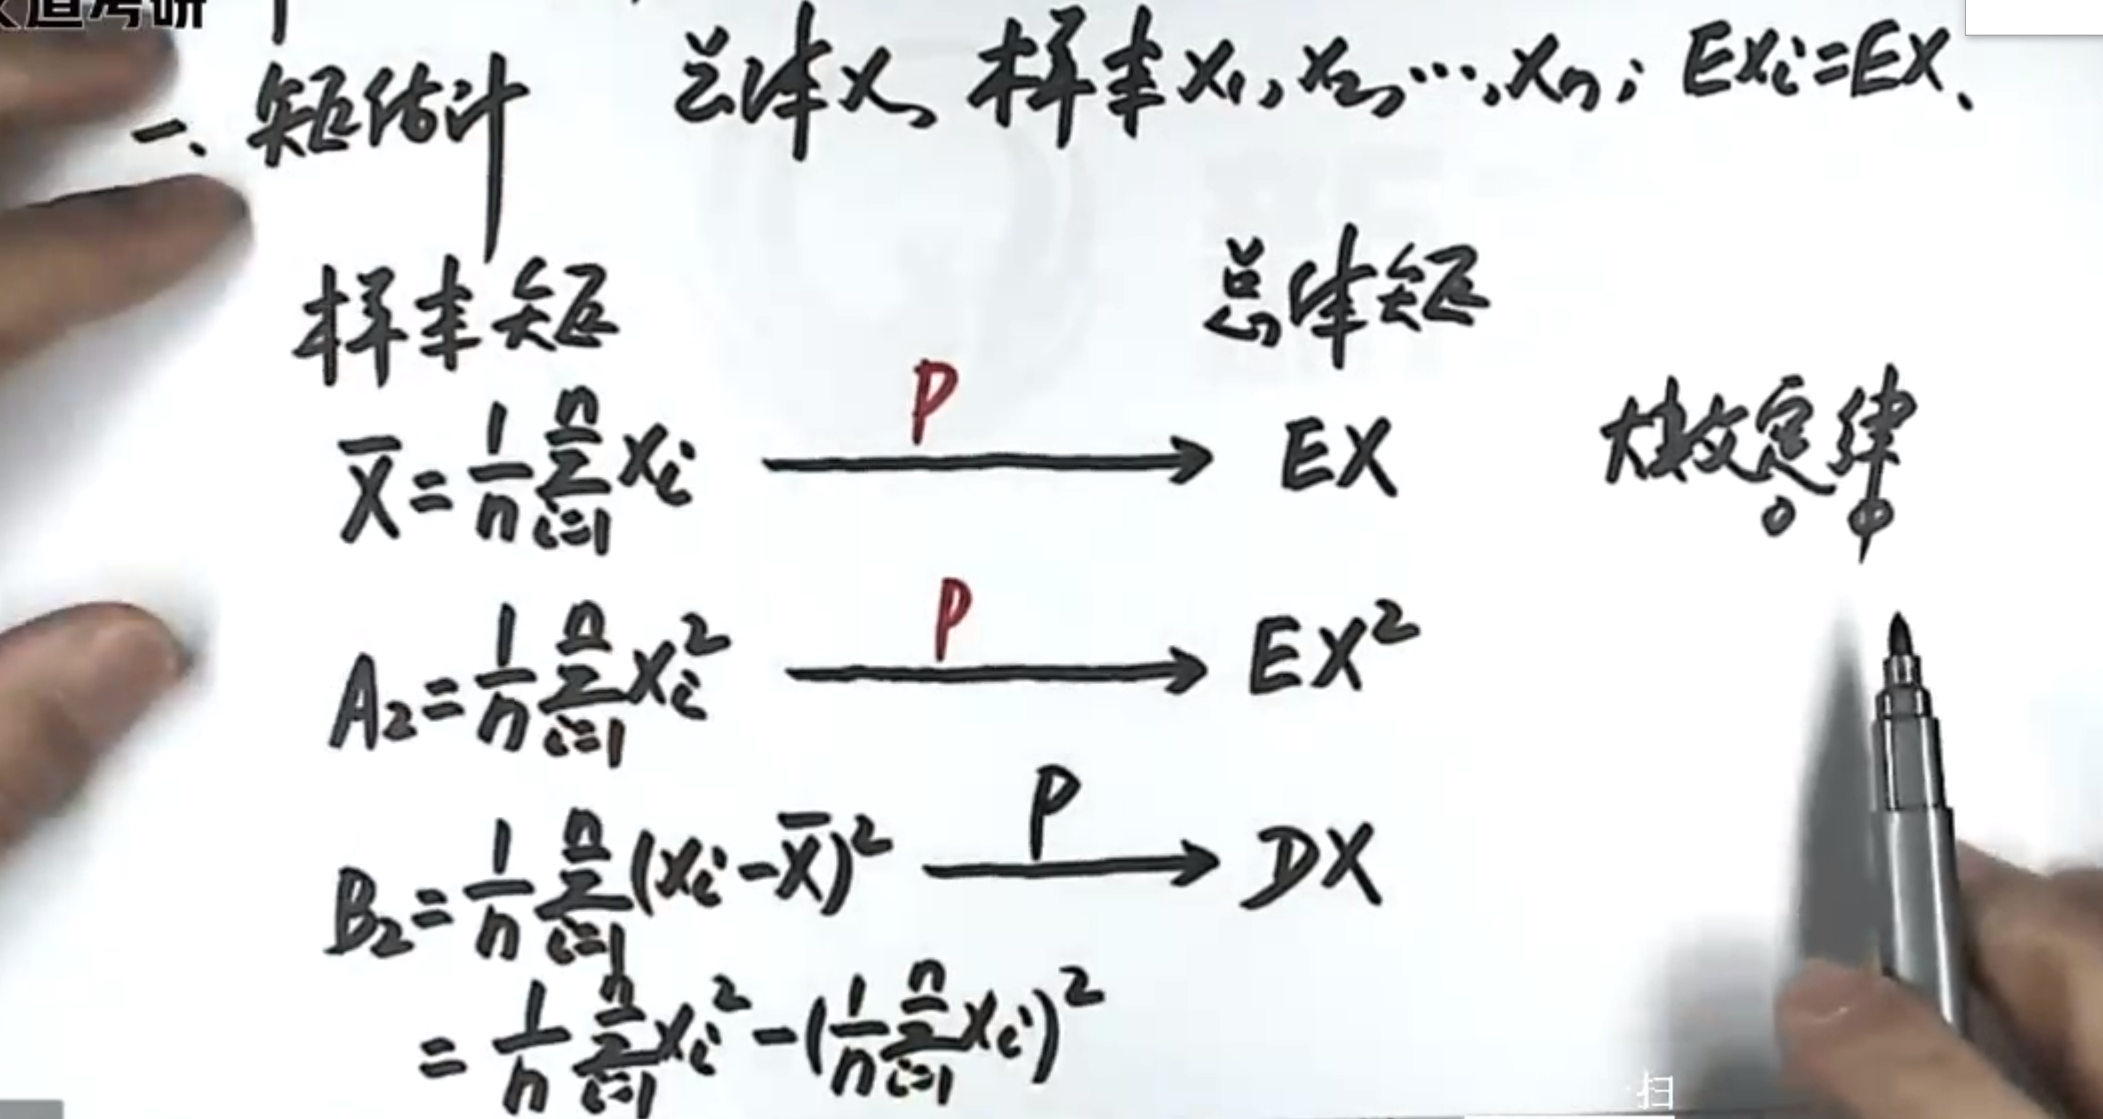 道考研
一、矩估计 总体X, 样本X₁, X₂, …, Xₙ; EXᵢ=EX、
样本矩 总体矩
X̄ = 1/n ∑ᵢ₌₁ⁿ Xᵢ —P→ EX 大数定律
A₂ = 1/n ∑ᵢ₌₁ⁿ Xᵢ² —P→ EX²
B₂ = 1/n ∑ᵢ₌₁ⁿ (Xᵢ-X̄)² —P→ DX
= 1/n ∑ᵢ₌₁ⁿ Xᵢ² - (1/n ∑ᵢ₌₁ⁿ Xᵢ)²
扫